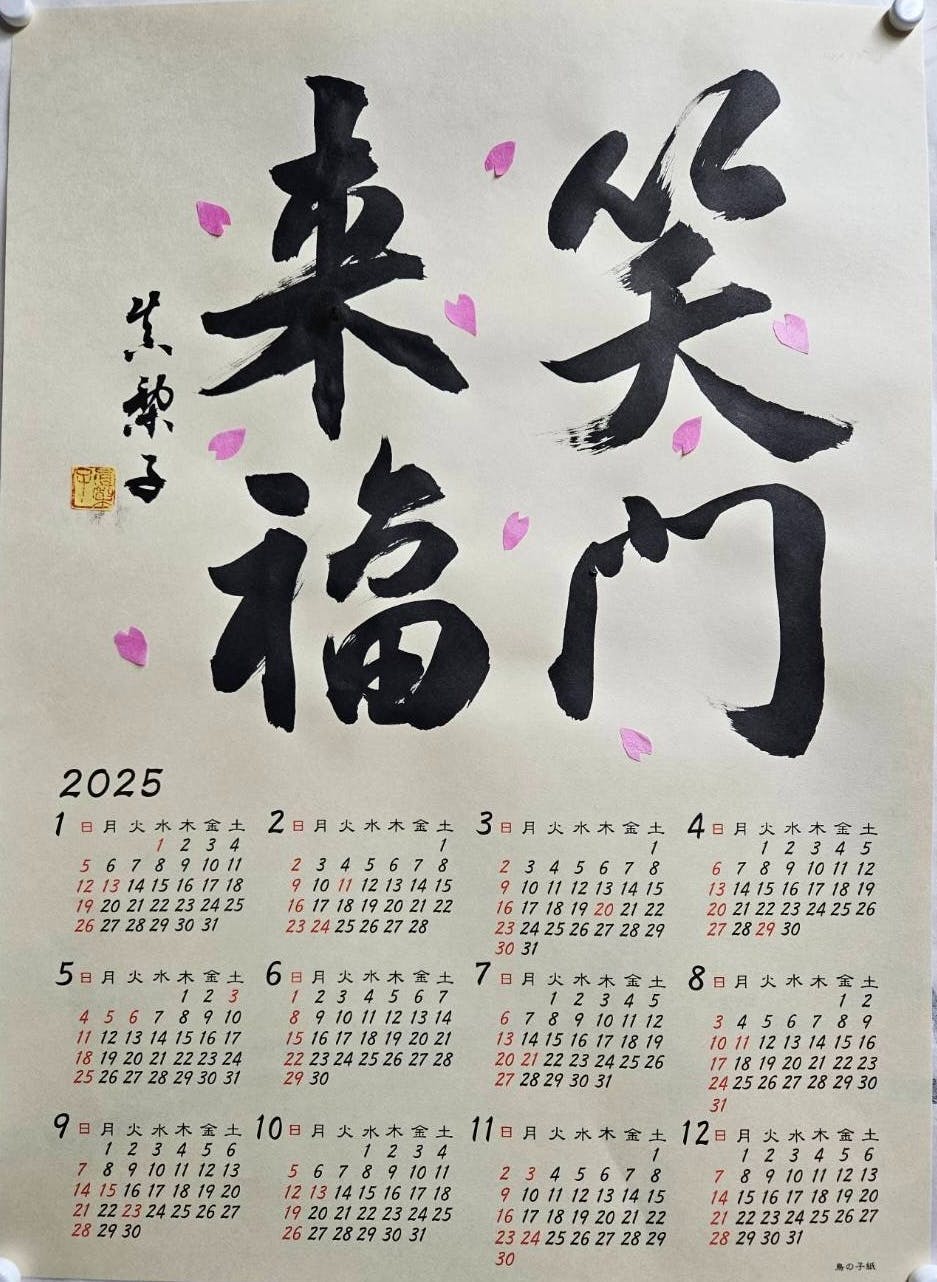 笑門
来福
真梨子
2025
1 日 月 火 水 木 金 土
1 2 3 4
5 6 7 8 9 10 11
12 13 14 15 16 17 18
19 20 21 22 23 24 25
26 27 28 29 30 31
2 日 月 火 水 木 金 土
1
2 3 4 5 6 7 8
9 10 11 12 13 14 15
16 17 18 19 20 21 22
23 24 25 26 27 28
3 日 月 火 水 木 金 土
1
2 3 4 5 6 7 8
9 10 11 12 13 14 15
16 17 18 19 20 21 22
23 24 25 26 27 28 29
30 31
4 日 月 火 水 木 金 土
1 2 3 4 5
6 7 8 9 10 11 12
13 14 15 16 17 18 19
20 21 22 23 24 25 26
27 28 29 30
5 日 月 火 水 木 金 土
1 2 3
4 5 6 7 8 9 10
11 12 13 14 15 16 17
18 19 20 21 22 23 24
25 26 27 28 29 30 31
6 日 月 火 水 木 金 土
1 2 3 4 5 6 7
8 9 10 11 12 13 14
15 16 17 18 19 20 21
22 23 24 25 26 27 28
29 30
7 日 月 火 水 木 金 土
1 2 3 4 5
6 7 8 9 10 11 12
13 14 15 16 17 18 19
20 21 22 23 24 25 26
27 28 29 30 31
8 日 月 火 水 木 金 土
1 2
3 4 5 6 7 8 9
10 11 12 13 14 15 16
17 18 19 20 21 22 23
24 25 26 27 28 29 30
31
9 日 月 火 水 木 金 土
1 2 3 4 5 6
7 8 9 10 11 12 13
14 15 16 17 18 19 20
21 22 23 24 25 26 27
28 29 30
10 日 月 火 水 木 金 土
1 2 3 4
5 6 7 8 9 10 11
12 13 14 15 16 17 18
19 20 21 22 23 24 25
26 27 28 29 30 31
11 日 月 火 水 木 金 土
1
2 3 4 5 6 7 8
9 10 11 12 13 14 15
16 17 18 19 20 21 22
23 24 25 26 27 28 29
30
12 日 月 火 水 木 金 土
1 2 3 4 5 6
7 8 9 10 11 12 13
14 15 16 17 18 19 20
21 22 23 24 25 26 27
28 29 30 31
鳥の子紙